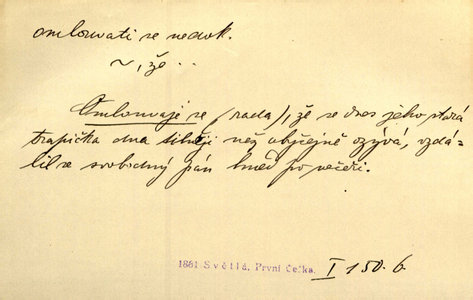 omlouvati se nedok.
~, že ..
Omlouvaje se (rada), že se dnes jeho stará
trapička dna silněji než obyčejně ozývá, vzdá-
lil se svobodný pán hned po večeři.
1861 Světlá, První Češka. I 150. 6.